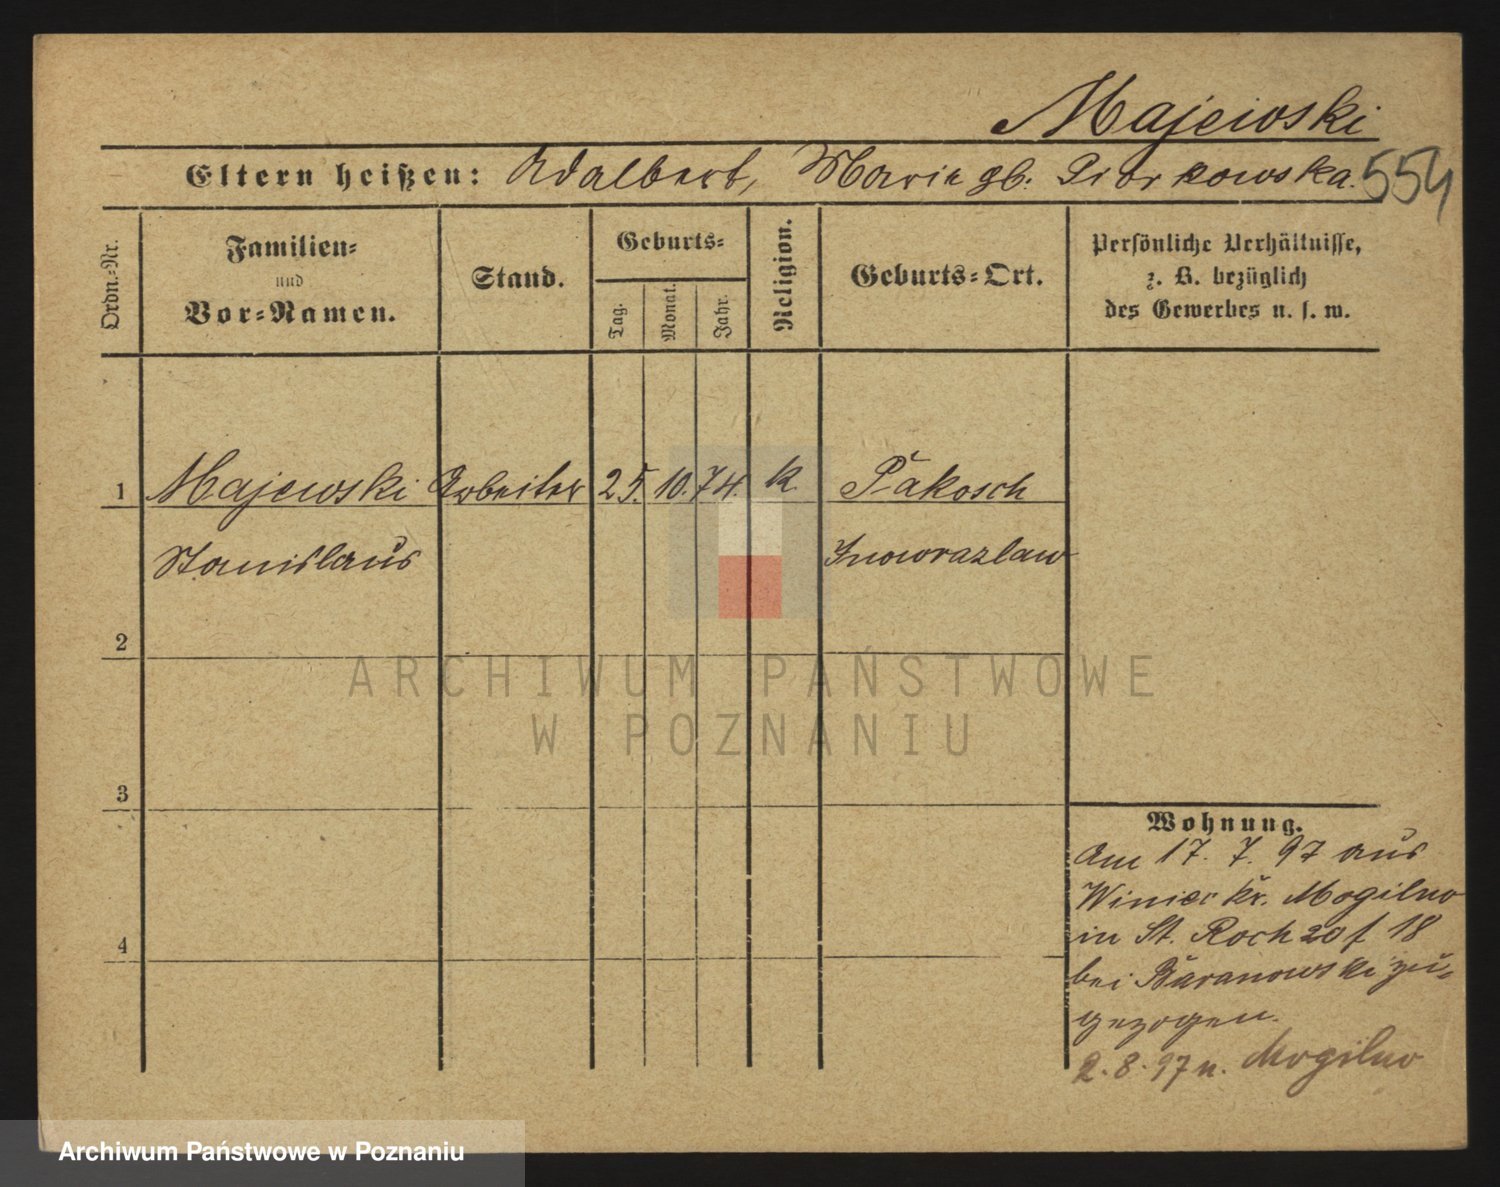 Majewski
Eltern heißen: Adalbert, Marie gb. Piorkowska. 554
Ordn.-Nr.
Familien-
und
Vor-Namen.
Stand.
Geburts-
Tag.
Monat.
Jahr.
Religion.
Geburts-Ort.
Persönliche Verhältnisse,
z. B. bezüglich
des Gewerbes u. s. w.
1 Majewski Arbeiter 25. 10. 74. k. Pakosch
Stanislaus Inowrazlaw
2
ARCHIWUM PAŃSTWOWE
W POZNANIU
3
Wohnung.
Am 17. 7. 97 aus
Winiec Kr. Mogilno
in St. Roch 20 f 18
4
bei Baranowski zu-
gezogen.
2. 8. 97 n. Mogilno
Archiwum Państwowe w Poznaniu